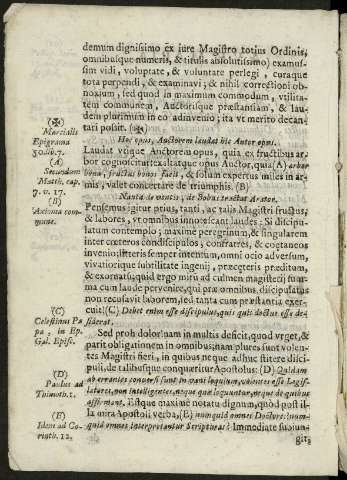 demum dignissimo ex iure Magistro totius Ordinis,
omnibusque numeris, & titulis absolutissimo) examus-
sim vidi, voluptate, & voluntate perlegi, curaque
tota perpendi, & examinavi; & nihil correctioni ob-
noxium, sed quod in maximum commodum, utilita-
tem communem, Auctorisque præstantiam, & lau-
dem plurimum in eo adinvenio; ita vt merito decan-
tari possit. (✠)
(✠)
Martialis
Epigrama
30. lib. 7.
(A)
Secundum
Matth. cap.
7. v. 17.
(B)
Axioma com-
mune.
Hec opus, Auctorem laudat hic Autor opus.
Laudat vtique Auctorem opus, quia ex fructibus ar-
bor cognoscitur: exaltatque opus Auctor, quia (A) arbor
bona, fructus bonos facit, & solum expertus miles in ar-
mis, valet concertare de triumphis. (B)
Nauta de ventis, de Bobus tractat Arator.
Pensemus igitur prius, tanti, ac talis Magistri fructus,
& labores, vt omnibus innotescant laudes: Si discipu-
latum contemplo; maxime peregrinum, & singularem
inter cœteros condiscipulos, confratres, & coetaneos
invenio; litteris semper intentum, omni ocio adversum,
vivatiorique subtilitate ingenij, præceteris præditum,
& exornatũ; quid ergo miru ad culmen magisterij sum-
ma cum laude pervenire, qui præ omnibus, discipulatus
non recusavit laborem, sed tanta cum præstantia exer-
cuit! (C) Debet enim esse discipulus, quis quti doctus esse de-
siderat.
(C)
Celestinus Pa
pa; in Ep.
Gal. Episc.
Sed proh dolor! nam in multis deficit, quod vrget, &
parit obligationem in omnibus; nam plures sunt volen-
tes Magistri fieri, in quibus neque adhuc stitere disci-
puli, de talibusque conquæritur Apostolus: (D) Quidam
ab errantes conversi sunt in vani loquium, volentes esse Legis-
latores, non intelligentes, neque quæ loquuntur, neque de quibus
affirmant. Estque maxime notatu dignum, quod post il-
la mira Apostoli verba, (E) numquid omnes Doctores? num-
quid omnes interpretantur Scripturas? Immediate subiun-
git;
(D)
Paulus ad
Thimoth. 1.
(E)
Idem ad Co-
rinth. 12.